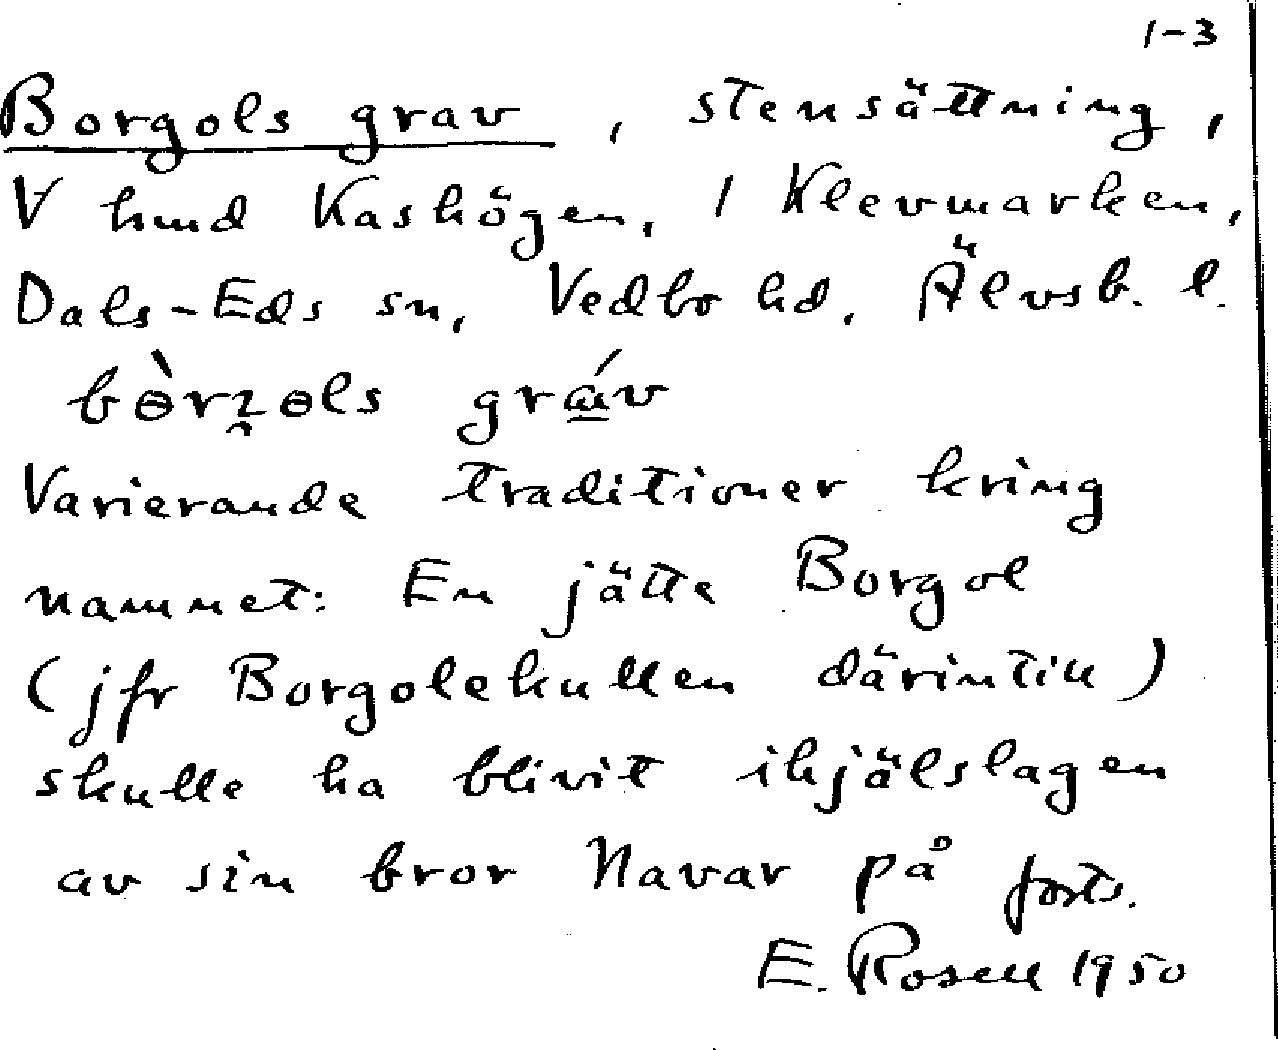 1-3
Borgols grav, stensättning,
V hmd Kashögen, 1 Klevmarken,
Dals-Eds sn, Vedbo hd, Älvsb. l.
Varierande traditioner kring
namnet: En jätte Borgol
(jfr Borgolekullen därintill)
skulle ha blivit ihjälslagen
av sin bror Navar på forts.
E. Rosell 1950